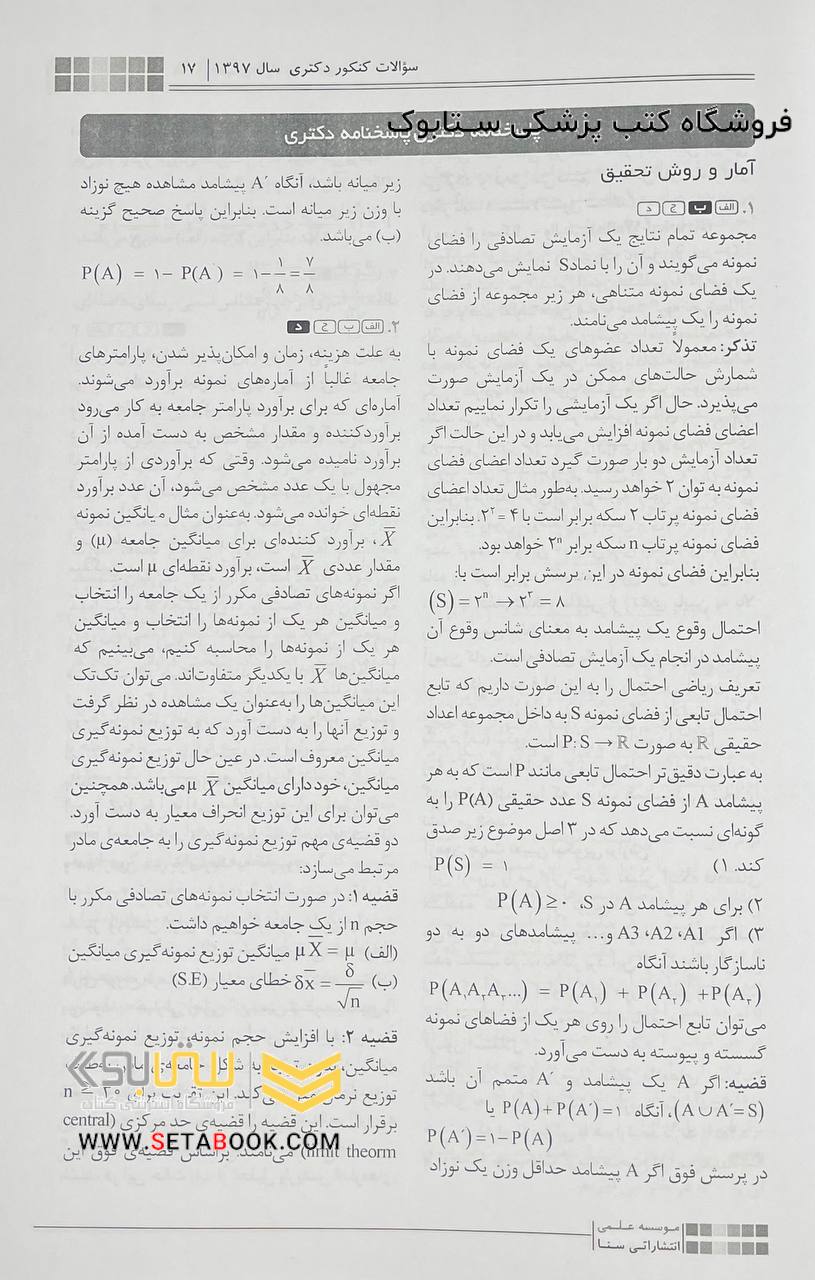 سؤالات کنکور دکتری سال ۱۳۹۷ | ۱۷
فروشگاه کتب پزشکی ستابوک
پاسخنامه دکتری
آمار و روش تحقیق
۱. الف ب ج د
مجموعه تمام نتایج یک آزمایش تصادفی را فضای
نمونه می‌گویند و آن را با نمادS نمایش می‌دهند. در
یک فضای نمونه متناهی، هر زیر مجموعه از فضای
نمونه را یک پیشامد می‌نامند.
تذکر: معمولاً تعداد عضوهای یک فضای نمونه با
شمارش حالت‌های ممکن در یک آزمایش صورت
می‌پذیرد. حال اگر یک آزمایشی را تکرار نماییم تعداد
اعضای فضای نمونه افزایش می‌یابد و در این حالت اگر
تعداد آزمایش دو بار صورت گیرد تعداد اعضای فضای
نمونه به توان ۲ خواهد رسید. به‌طور مثال تعداد اعضای
فضای نمونه پرتاب ۲ سکه برابر است با ۴ = ۲². بنابراین
فضای نمونه پرتاب n سکه برابر ۲ⁿ خواهد بود.
بنابراین فضای نمونه در این پرسش برابر است با:
(S) = ۲ⁿ → ۲³ = ۸
احتمال وقوع یک پیشامد به معنای شانس وقوع آن
پیشامد در انجام یک آزمایش تصادفی است.
تعریف ریاضی احتمال را به این صورت داریم که تابع
احتمال تابعی از فضای نمونه S به داخل مجموعه اعداد
حقیقی ℝ به صورت P: S → ℝ است.
به عبارت دقیق‌تر احتمال تابعی مانند P است که به هر
پیشامد A از فضای نمونه S عدد حقیقی P(A) را به
گونه‌ای نسبت می‌دهد که در ۳ اصل موضوع زیر صدق
کند. ۱) P(S) = ۱
۲) برای هر پیشامد A در S، P(A) ≥ ۰
۳) اگر A1، A2، A3 و... پیشامدهای دو به دو
ناسازگار باشند آنگاه
P(A₁A₂A₃...) = P(A₁) + P(A₂) + P(A₃)
می‌توان تابع احتمال را روی هر یک از فضاهای نمونه
گسسته و پیوسته به دست می‌آورد.
قضیه: اگر A یک پیشامد و A´ متمم آن باشد
(A ∪ A´= S)، آنگاه P(A)+P(A´)=۱ یا
P(A´)=۱−P(A)
در پرسش فوق اگر A پیشامد حداقل وزن یک نوزاد
زیر میانه باشد، آنگاه A´ پیشامد مشاهده هیچ نوزاد
با وزن زیر میانه است. بنابراین پاسخ صحیح گزینه
(ب) می‌باشد.
P(A) = ۱− P(A´) = ۱−۱/۸ = ۷/۸
۲. الف ب ج د
به علت هزینه، زمان و امکان‌پذیر شدن، پارامترهای
جامعه غالباً از آماره‌های نمونه برآورد می‌شوند.
آماره‌ای که برای برآورد پارامتر جامعه به کار می‌رود
برآوردکننده و مقدار مشخص به دست آمده از آن
برآورد نامیده می‌شود. وقتی که برآوردی از پارامتر
مجهول با یک عدد مشخص می‌شود، آن عدد برآورد
نقطه‌ای خوانده می‌شود. به‌عنوان مثال میانگین نمونه
X̅، برآورد کننده‌ای برای میانگین جامعه (μ) و
مقدار عددی X̅ است، برآورد نقطه‌ای μ است.
اگر نمونه‌های تصادفی مکرر از یک جامعه را انتخاب
و میانگین هر یک از نمونه‌ها را انتخاب و میانگین
هر یک از نمونه‌ها را محاسبه کنیم، می‌بینیم که
میانگین‌ها X̅ با یکدیگر متفاوت‌اند. می‌توان تک‌تک
این میانگین‌ها را به‌عنوان یک مشاهده در نظر گرفت
و توزیع آنها را به دست آورد که به توزیع نمونه‌گیری
میانگین معروف است. در عین حال توزیع نمونه‌گیری
میانگین، خود دارای میانگین X̅ μ می‌باشد. همچنین
می‌توان برای این توزیع انحراف معیار به دست آورد.
دو قضیه‌ی مهم توزیع نمونه‌گیری را به جامعه‌ی مادر
مرتبط می‌سازد:
قضیه ۱: در صورت انتخاب نمونه‌های تصادفی مکرر با
حجم n از یک جامعه خواهیم داشت.
(الف) μX̅ = μ میانگین توزیع نمونه‌گیری میانگین
(ب) δx̅ = δ/√n خطای معیار (S.E)
قضیه ۲: با افزایش حجم نمونه، توزیع نمونه‌گیری
میانگین، بدون توجه به شکل جامعه‌ی مادر، به سمت
توزیع نرمال میل می‌کند. این تقریب برای n ≥
برقرار است. این قضیه را قضیه‌ی حد مرکزی (central
limit theorm) می‌نامند. براساس قضیه‌ی فوق این
ستابوک
فروشگاه اینترنتی کتاب
WWW.SETABOOK.COM
موسسه علمی
انتشاراتی سنا